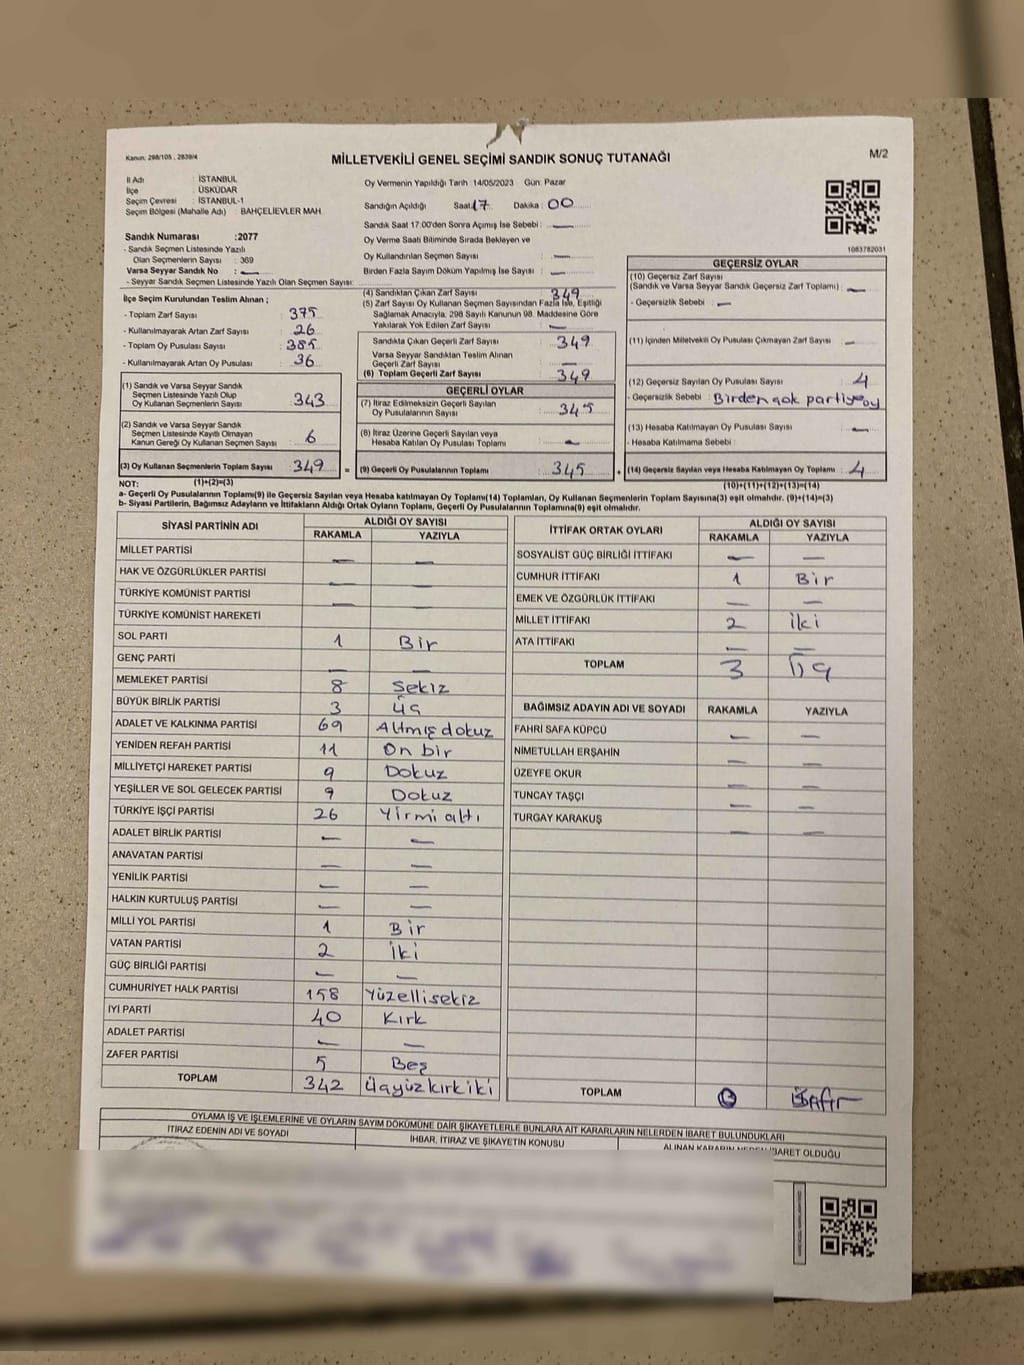 Kanun: 298/105 , 2839/4
MİLLETVEKİLİ GENEL SEÇİMİ SANDIK SONUÇ TUTANAĞI
M/2
İl Adı : İSTANBUL
İlçe : ÜSKÜDAR
Seçim Çevresi : İSTANBUL-1
Seçim Bölgesi (Mahalle Adı) BAHÇELİEVLER MAH.
Sandık Numarası :2077
- Sandık Seçmen Listesinde Yazılı
Olan Seçmenlerin Sayısı : 369
Varsa Seyyar Sandık No : —
- Seyyar Sandık Seçmen Listesinde Yazılı Olan Seçmen Sayısı:
Oy Vermenin Yapıldığı Tarih :14/05/2023 Gün: Pazar
Sandığın Açıldığı Saat:17 Dakika: 00
Sandık Saat 17:00'den Sonra Açımış İse Sebebi : —
Oy Verme Saati Bitiminde Sırada Bekleyen ve
Oy Kullandırılan Seçmen Sayısı : —
Birden Fazla Sayım Döküm Yapılmış İse Sayısı : —
1083782031
İlçe Seçim Kurulundan Teslim Alınan ;
- Toplam Zarf Sayısı : 375
- Kullanılmayarak Artan Zarf Sayısı : 26
- Toplam Oy Pusulası Sayısı : 385
- Kullanılmayarak Artan Oy Pusulası : 36
(1) Sandık ve Varsa Seyyar Sandık
Seçmen Listesinde Yazılı Olup
Oy Kullanan Seçmenlerin Sayısı : 343
(2) Sandık ve Varsa Seyyar Sandık
Seçmen Listesinde Kayıtlı Olmayan
Kanun Gereği Oy Kullanan Seçmen Sayısı : 6
(3) Oy Kullanan Seçmenlerin Toplam Sayısı : 349 =
(1)+(2)=(3)
(4) Sandıktan Çıkan Zarf Sayısı : 349
(5) Zarf Sayısı Oy Kullanan Seçmen Sayısından Fazla İse, Eşitliği
Sağlamak Amacıyla, 298 Sayılı Kanunun 98. Maddesine Göre
Yakılarak Yok Edilen Zarf Sayısı : —
Sandıkta Çıkan Geçerli Zarf Sayısı : 349
Varsa Seyyar Sandıktan Teslim Alınan
Geçerli Zarf Sayısı : —
(6) Toplam Geçerli Zarf Sayısı : 349
GEÇERLİ OYLAR
(7) İtiraz Edilmeksizin Geçerli Sayılan
Oy Pusulalarının Sayısı : 345
(8) İtiraz Üzerine Geçerli Sayılan veya
Hesaba Katılan Oy Pusulası Toplamı : —
(9) Geçerli Oy Pusulalarının Toplamı : 345 +
GEÇERSİZ OYLAR
(10) Geçersiz Zarf Sayısı
(Sandık ve Varsa Seyyar Sandık Geçersiz Zarf Toplamı) : —
- Geçersizlik Sebebi : —
(11) İçinden Milletvekili Oy Pusulası Çıkmayan Zarf Sayısı : —
(12) Geçersiz Sayılan Oy Pusulası Sayısı : 4
- Geçersizlik Sebebi : Birden çok partiye oy
(13) Hesaba Katılmayan Oy Pusulası Sayısı : —
- Hesaba Katılmama Sebebi :
(14) Geçersiz Sayılan veya Hesaba Katılmayan Oy Toplamı : 4
(10)+(11)+(12)+(13)=(14)
NOT:
a- Geçerli Oy Pusulalarının Toplamı(9) ile Geçersiz Sayılan veya Hesaba katılmayan Oy Toplamı(14) Toplamları, Oy Kullanan Seçmenlerin Toplam Sayısına(3) eşit olmalıdır. (9)+(14)=(3)
b- Siyasi Partilerin, Bağımsız Adayların ve İttifakların Aldığı Ortak Oyların Toplamı, Geçerli Oy Pusulalarının Toplamına(9) eşit olmalıdır.
SİYASİ PARTİNİN ADI ALDIĞI OY SAYISI
RAKAMLA YAZIYLA
MİLLET PARTİSİ — —
HAK VE ÖZGÜRLÜKLER PARTİSİ — —
TÜRKİYE KOMÜNİST PARTİSİ — —
TÜRKİYE KOMÜNİST HAREKETİ
SOL PARTİ 1 Bir
GENÇ PARTİ — —
MEMLEKET PARTİSİ 8 Sekiz
BÜYÜK BİRLİK PARTİSİ 3 Üç
ADALET VE KALKINMA PARTİSİ 69 Altmış dokuz
YENİDEN REFAH PARTİSİ 11 On bir
MİLLİYETÇİ HAREKET PARTİSİ 9 Dokuz
YEŞİLLER VE SOL GELECEK PARTİSİ 9 Dokuz
TÜRKİYE İŞÇİ PARTİSİ 26 Yirmi altı
ADALET BİRLİK PARTİSİ — —
ANAVATAN PARTİSİ — —
YENİLİK PARTİSİ — —
HALKIN KURTULUŞ PARTİSİ — —
MİLLİ YOL PARTİSİ 1 Bir
VATAN PARTİSİ 2 İki
GÜÇ BİRLİĞİ PARTİSİ — —
CUMHURİYET HALK PARTİSİ 158 Yüzellisekiz
İYİ PARTİ 40 Kırk
ADALET PARTİSİ — —
ZAFER PARTİSİ 5 Beş
TOPLAM 342 Üçyüzkırkiki
İTTİFAK ORTAK OYLARI ALDIĞI OY SAYISI
RAKAMLA YAZIYLA
SOSYALİST GÜÇ BİRLİĞİ İTTİFAKI — —
CUMHUR İTTİFAKI 1 Bir
EMEK VE ÖZGÜRLÜK İTTİFAKI — —
MİLLET İTTİFAKI 2 İki
ATA İTTİFAKI — —
TOPLAM 3 Üç
BAĞIMSIZ ADAYIN ADI VE SOYADI RAKAMLA YAZIYLA
FAHRİ SAFA KÜPCÜ — —
NİMETULLAH ERŞAHİN — —
ÜZEYFE OKUR — —
TUNCAY TAŞÇI — —
TURGAY KARAKUŞ — —
TOPLAM 0 Sıfır
OYLAMA İŞ VE İŞLEMLERİNE VE OYLARIN SAYIM DÖKÜMÜNE DAİR ŞİKAYETLERLE BUNLARA AİT KARARLARIN NELERDEN İBARET BULUNDUKLARI
İTİRAZ EDENİN ADI VE SOYADI İHBAR, İTİRAZ VE ŞİKAYETİN KONUSU ALINAN KARARIN NEDEN İBARET OLDUĞU